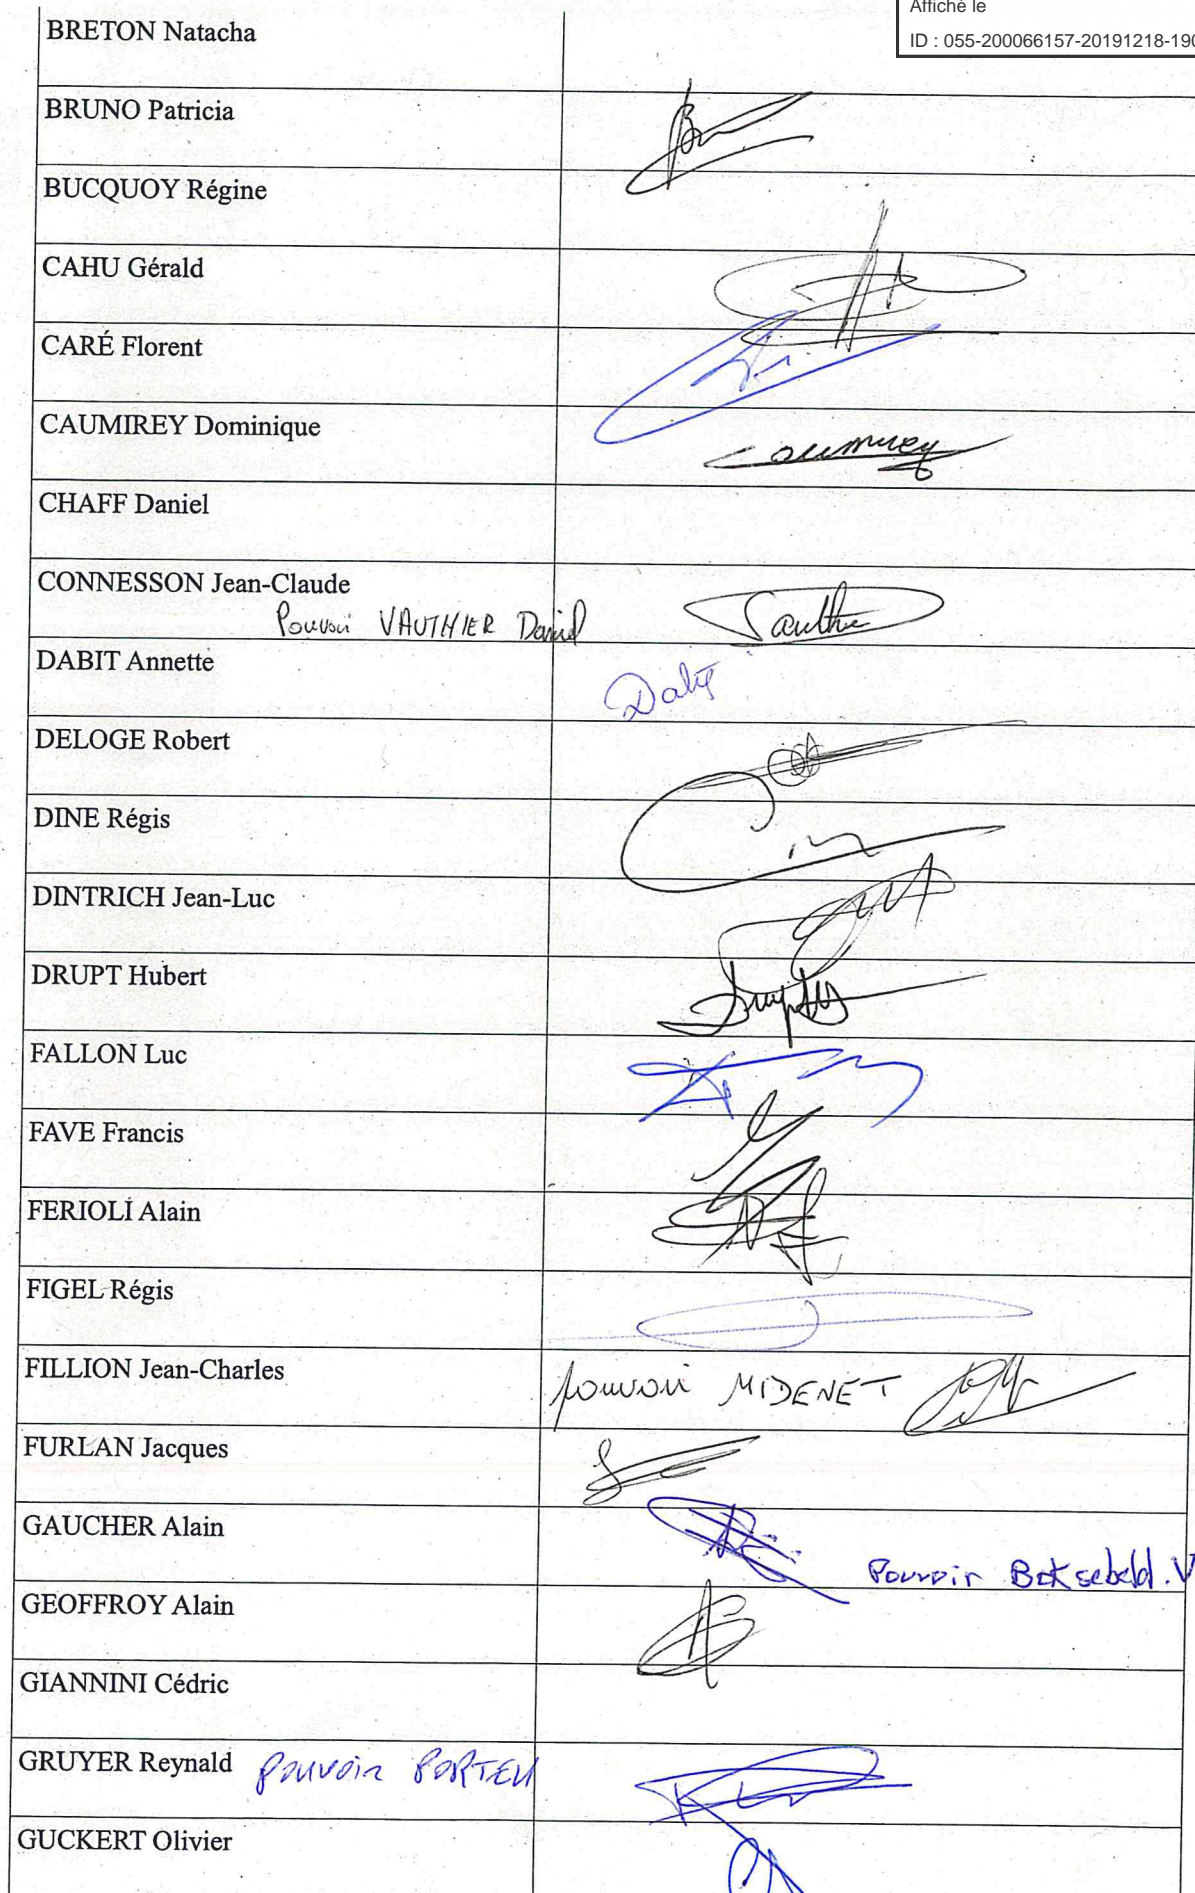 Affiché le
ID : 055-200066157-20191218-190
BRETON Natacha
BRUNO Patricia
BUCQUOY Régine
CAHU Gérald
CARÉ Florent
CAUMIREY Dominique
Caumirey
CHAFF Daniel
CONNESSON Jean-Claude
Pouvoir VAUTHIER Daniel
DABIT Annette
Dabit
DELOGE Robert
DINE Régis
DINTRICH Jean-Luc
DRUPT Hubert
FALLON Luc
FAVE Francis
FERIOLI Alain
FIGEL Régis
FILLION Jean-Charles
pouvoir MIDENET
FURLAN Jacques
GAUCHER Alain
Pouvoir
GEOFFROY Alain
GIANNINI Cédric
GRUYER Reynald
pouvoir
GUCKERT Olivier